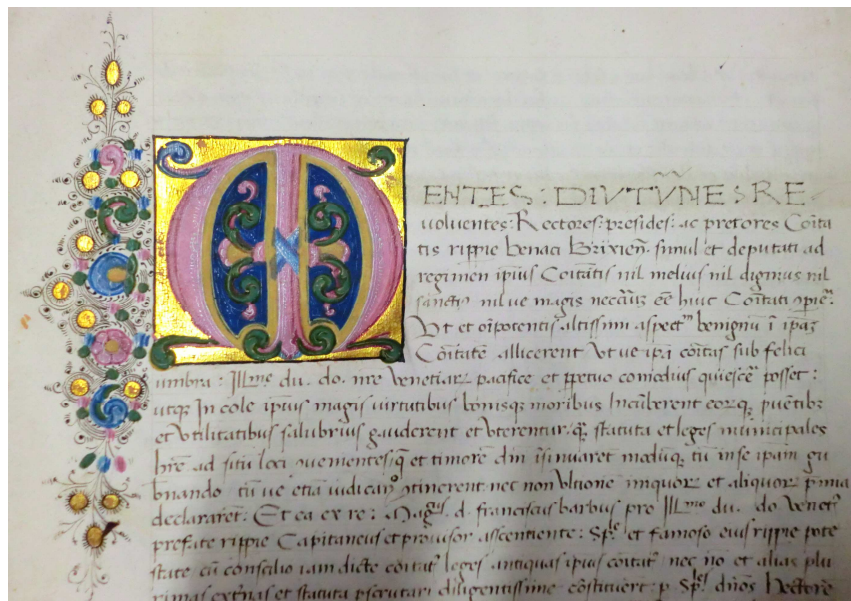 MENTES : DIVTVNES RE
voluentes : Rectores : presides : ac pretores Coita
tis rippie benaci Brixien simul et deputati ad
regimen ipius Coitatis nil melius nil dignius nil
nil ve magis huic Coitati
Vt et oipotentis altissimi aspectm benignu i
Coitate allicerent Vt ve ipa coitas sub felici
umbra : Illme du. do. nre Venetiar pacifice et ppetuo comodius quiesce posset :
utq In cole ipius magis virtutibus bonisq moribus Incuberent eorq
et Vtilitatibus salubrius gauderent et Vterentur q statuta et leges municipales
hre ad situ loci et timore din isinuaret moduq tu in se ipam gu
bnando tu ve etia iudican otinerent nec non Vltione iniquor et aliquor pmia
declararet : Et ea ex re : Magcs. d. franciscus barbus pro Illme du. do Venet
prefate rippie Capitaneus et prouisor ascentiente : Sple et famoso eius rippie pote
state cu consilio iam dicte coitat leges antiquas ipius coitat nec no et alias plu
rimas et statuta pscrutari diligentissime costituert : p. Spl. dnos Rectore